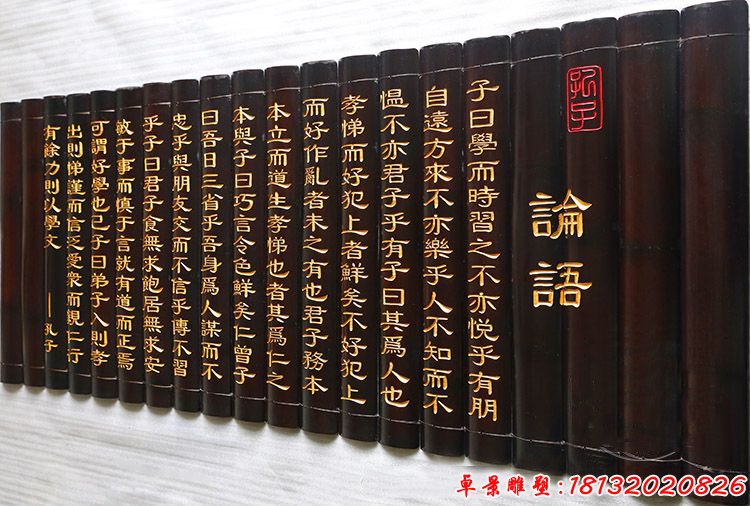 孔子
論語
子曰學而時習之不亦悅乎有朋
自遠方來不亦樂乎人不知而不
愠不亦君子乎有子曰其爲人也
孝悌而好犯上者鮮矣不好犯上
而好作亂者未之有也君子務本
本立而道生孝悌也者其爲仁之
本與子曰巧言令色鮮矣仁曾子
曰吾日三省乎吾身爲人謀而不
忠乎與朋友交而不信乎傳不習
乎子曰君子食無求飽居無求安
敏于事而慎于言就有道而正焉
可謂好學也已子曰弟子入則孝
出則悌謹而信泛愛衆而親仁行
有餘力則以學文 ——孔子
卓景雕塑:18132020826